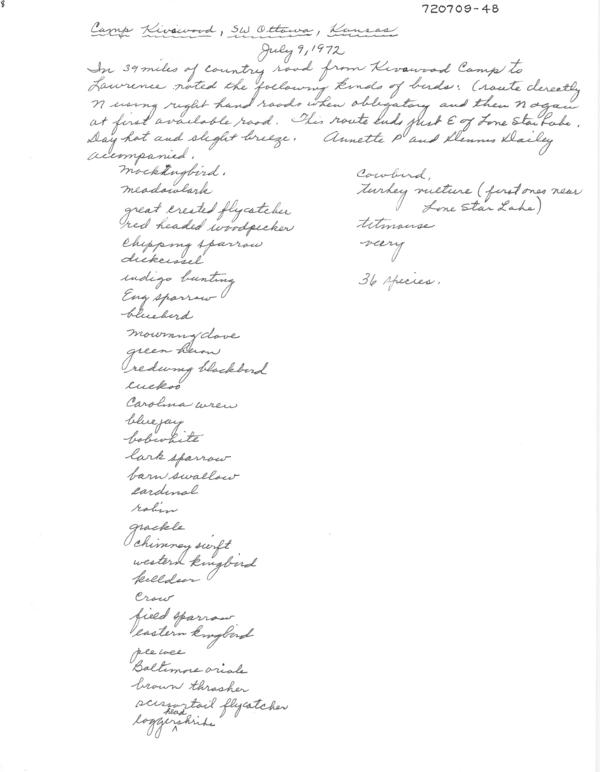 720709-48
Camp Kiwawood, SW Ottawa, Kansas
July 9, 1972
In 39 miles of country road from Kiwawood Camp to
Lawrence noted the following kinds of birds: (route directly
N using right hand roads when obligatory and then N again
at first available road. This route ends just E of Lone Star Lake.
Day hot and slight breeze. Annette P and Dennis Dailey
accompanied.
mockingbird.
meadowlark
great crested flycatcher
red headed woodpecker
chipping sparrow
dickcissel
indigo bunting
Eng sparrow
bluebird
mourning dove
green heron
redwing blackbird
cuckoo
Carolina wren
bluejay
bobwhite
lark sparrow
barn swallow
cardinal
robin
grackle
chimney swift
western kingbird
killdeer
crow
field sparrow
eastern kingbird
peewee
Baltimore oriole
brown thrasher
scissortail flycatcher
loggerhead shrike
Cowbird.
turkey vulture (first ones near
Lone Star Lake)
titmouse
veery
36 species.